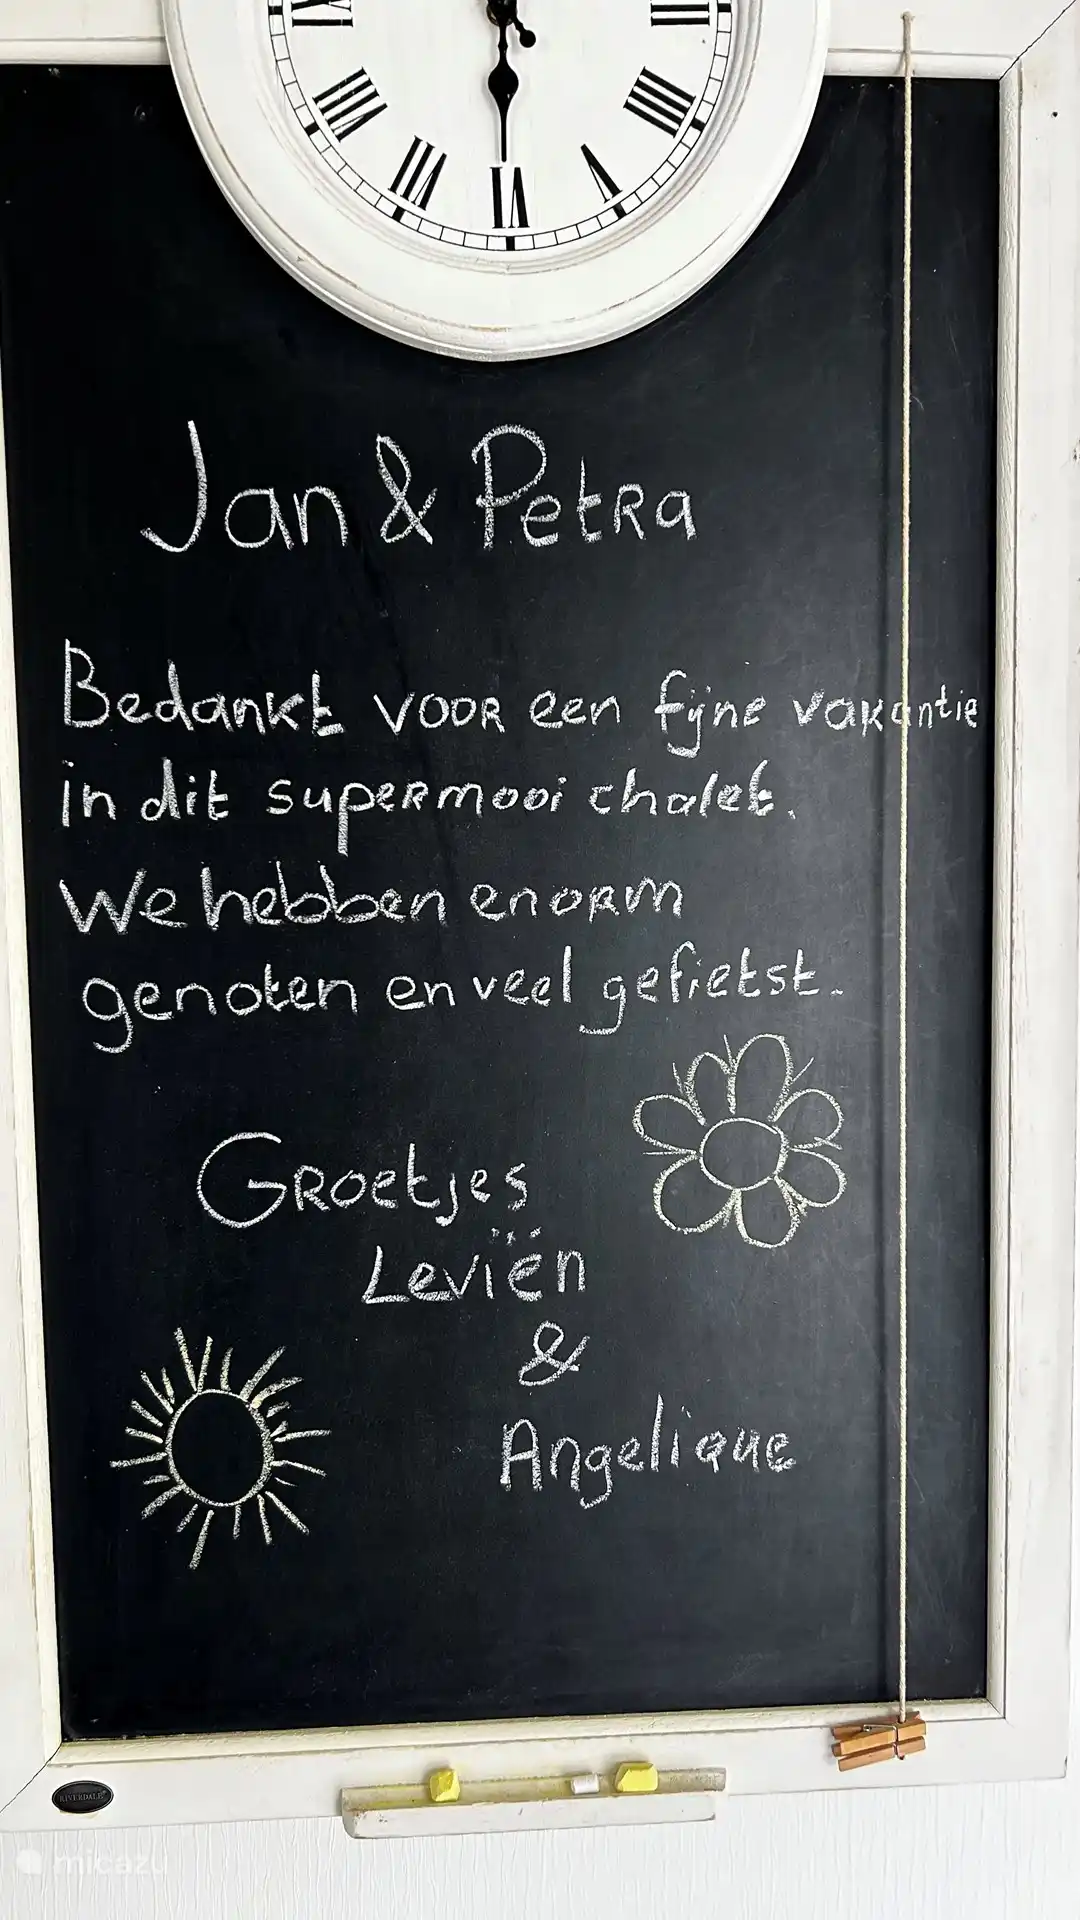 IX VIII VII VI V IIII III
Jan & Petra
Bedankt voor een fijne vakantie
in dit supermooi chalet.
We hebben enorm
genoten en veel gefietst.
Groetjes
Leviën
&
Angelique
RIVERDALE
micazu